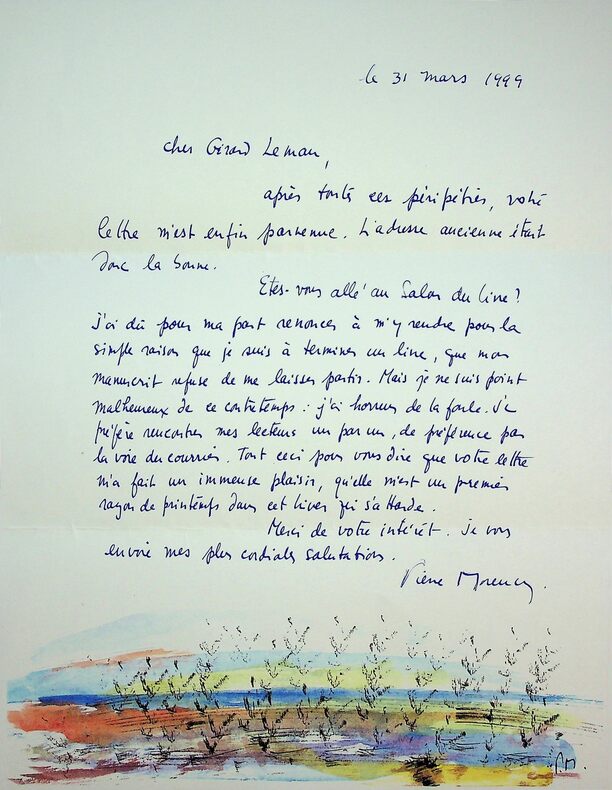 le 31 mars 1999
cher Gérard Leman,
après toutes ces péripéties, votre
lettre m'est enfin parvenue. L'adresse ancienne était
donc la bonne.
Etes-vous allé au Salon du livre?
J'ai dû pour ma part renoncer à m'y rendre pour la
simple raison que je suis à terminer un livre, que mon
manuscrit refuse de me laisser partir. Mais je ne suis point
malheureux de ce contretemps : j'ai horreur de la foule. Je
préfère rencontrer mes lecteurs un par un, de préférence par
la voie du courrier. Tout ceci pour vous dire que votre lettre
m'a fait un immense plaisir, qu'elle m'est un premier
rayon de printemps dans cet hiver qui s'attarde.
Merci de votre intérêt. Je vous
envoie mes plus cordiales salutations.
Pierre Morency.
PM.